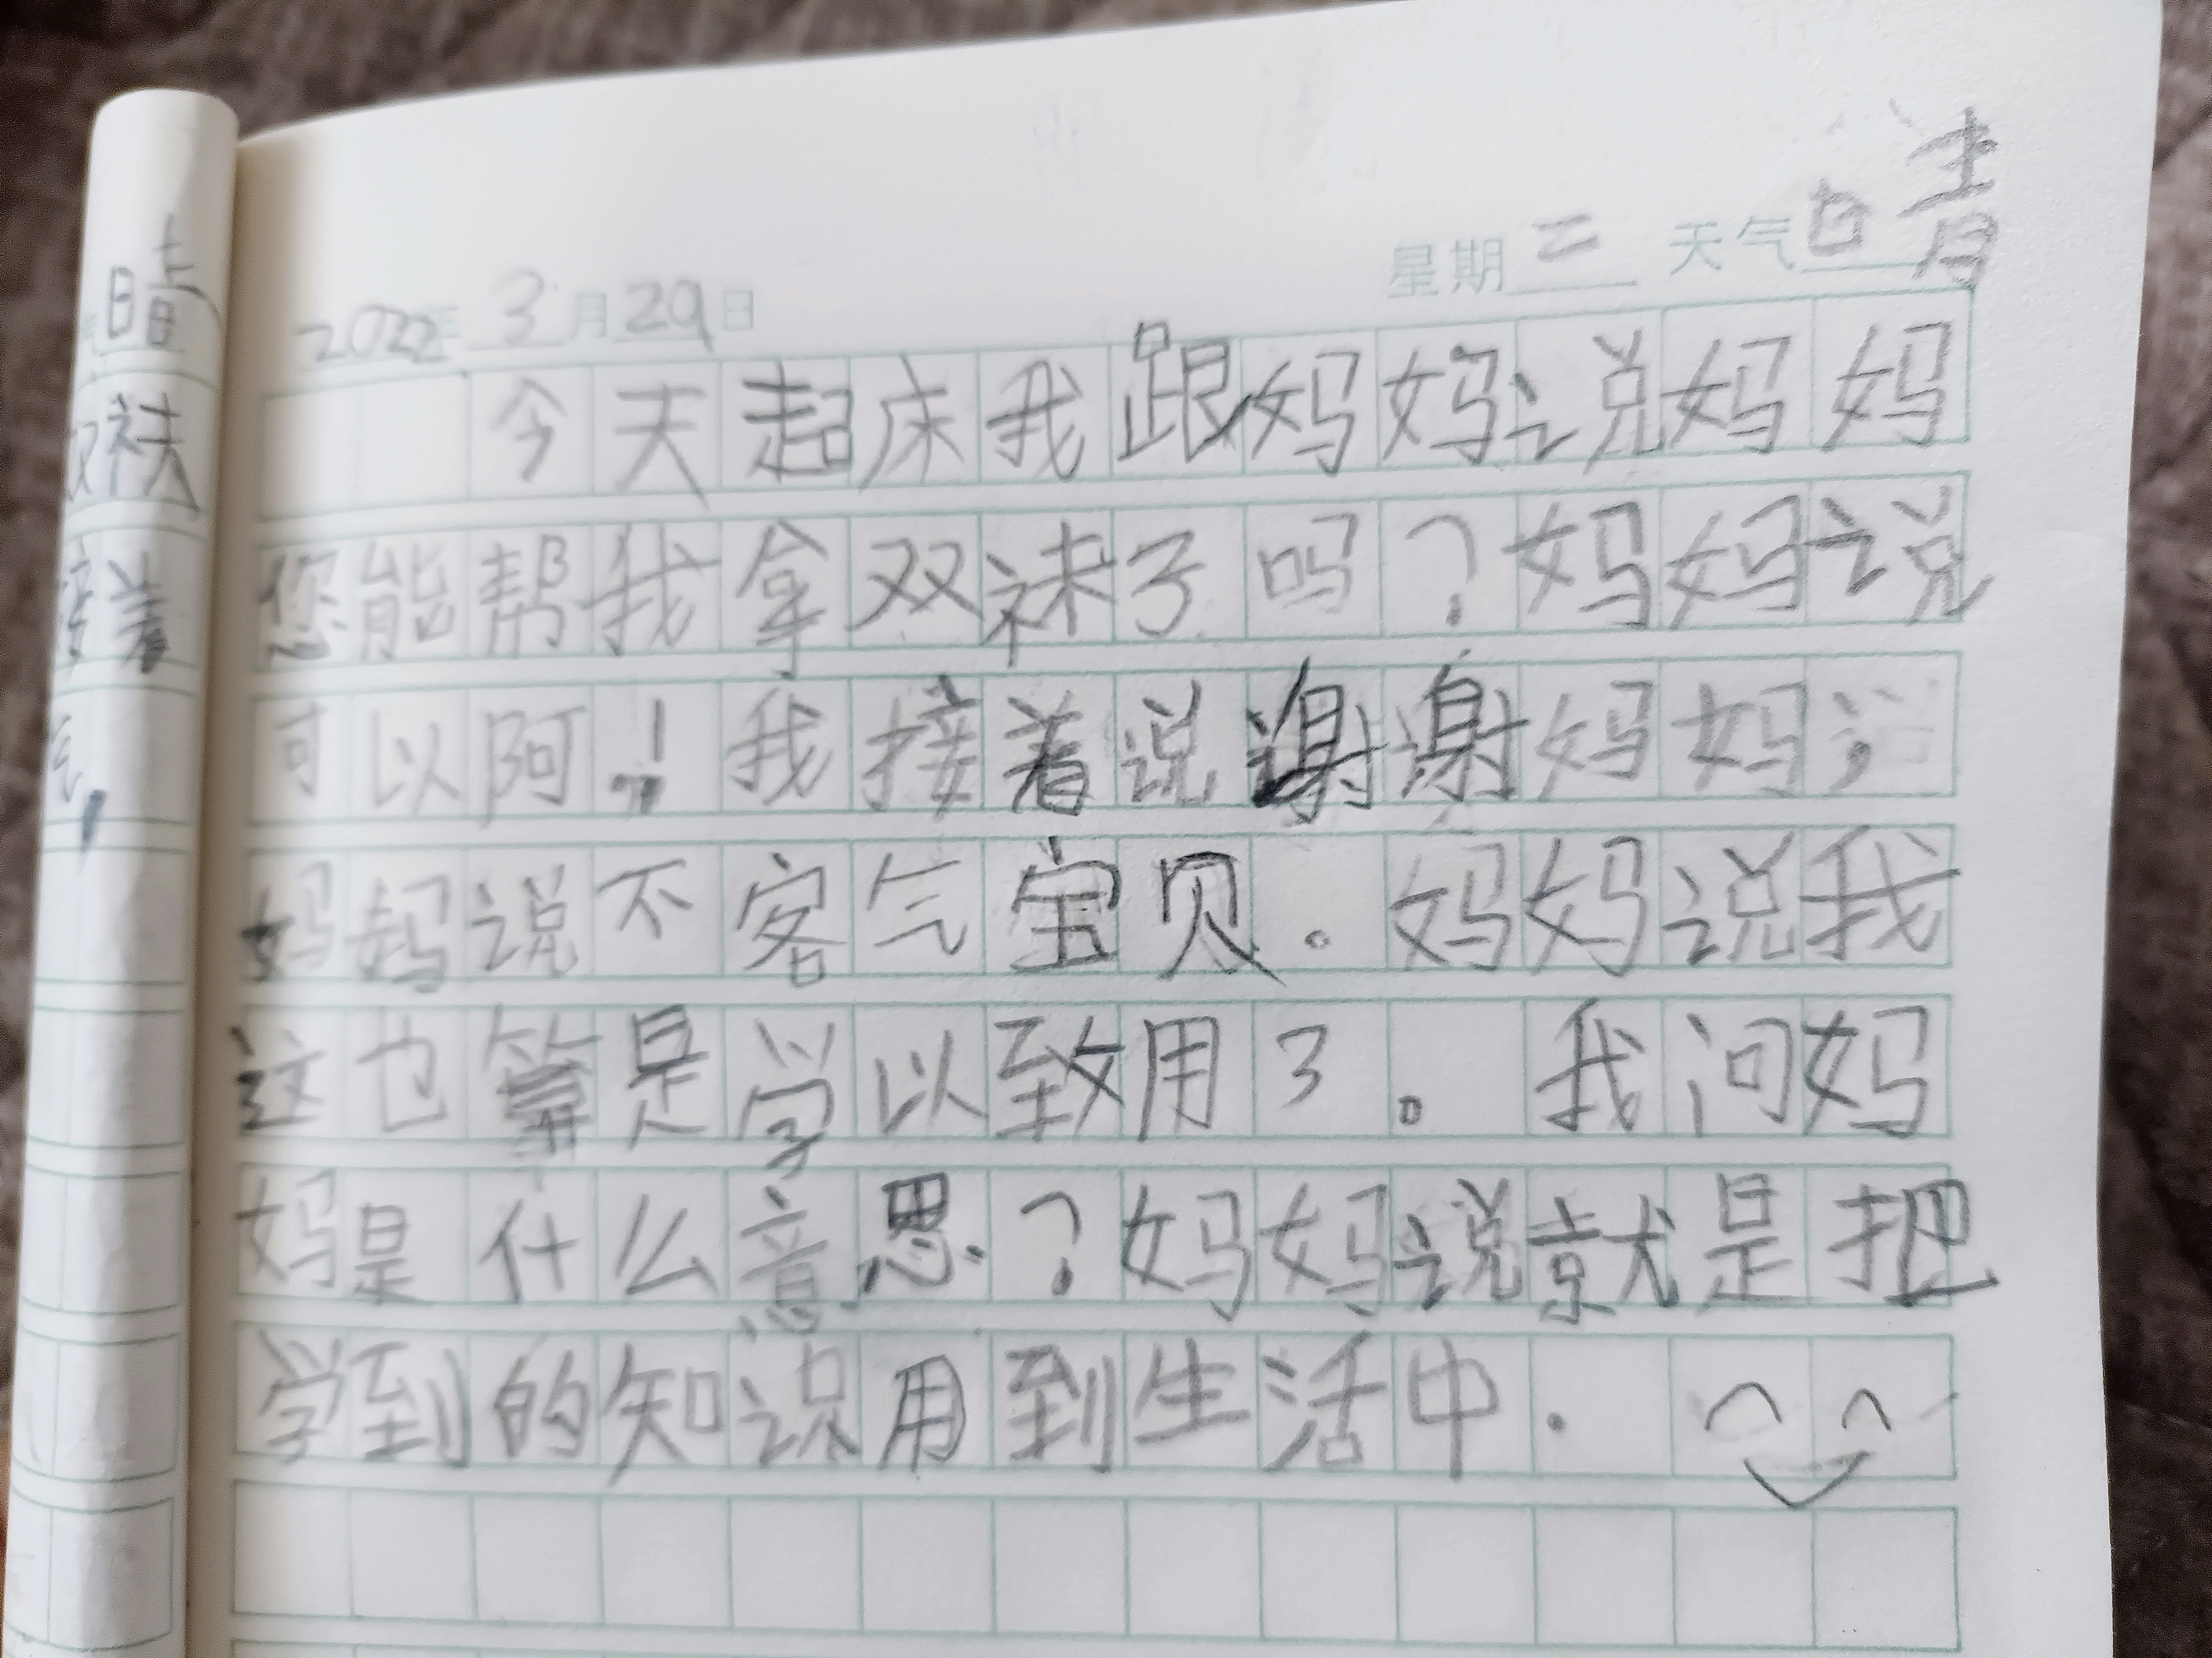 星期二 天气晴
2022年3月29日
今天起床我跟妈妈说妈妈
您能帮我拿双袜子吗？妈妈说
可以阿！我接着说谢谢妈妈；
妈妈说不客气宝贝。妈妈说我
这也算是学以致用了。我问妈
妈是什么意思？妈妈说就是把
学到的知识用到生活中.
晴
袜
接着
气